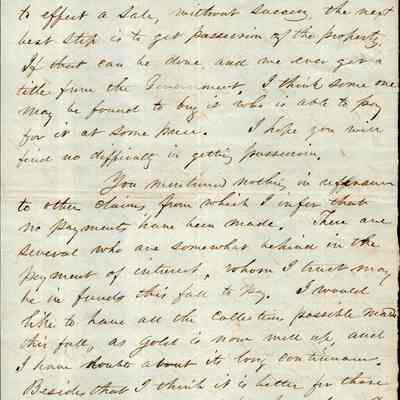 to effect a sale, without success, the next
best step is to get possession of the property.
If that can be done, and we ever get a
title from the Government, I think some one
may be found to buy it who is able to pay
for it at some price. I hope you will
find no difficulty in getting possession.
You mentioned nothing in reference
to other claims from which I infer that
no payments have been made. There are
several who are somewhat behind in the
payment of interest, whom I trust may
be in funds this fall to pay. I would
like to have all the collections possible made
this fall, as gold is now well up, and
I have doubts about its long continuance.
Besides that I think it is better for those